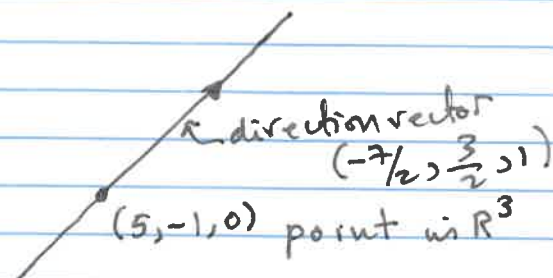 direction vector
(-7/2, 3/2, 1)
(5,-1,0) point in R³